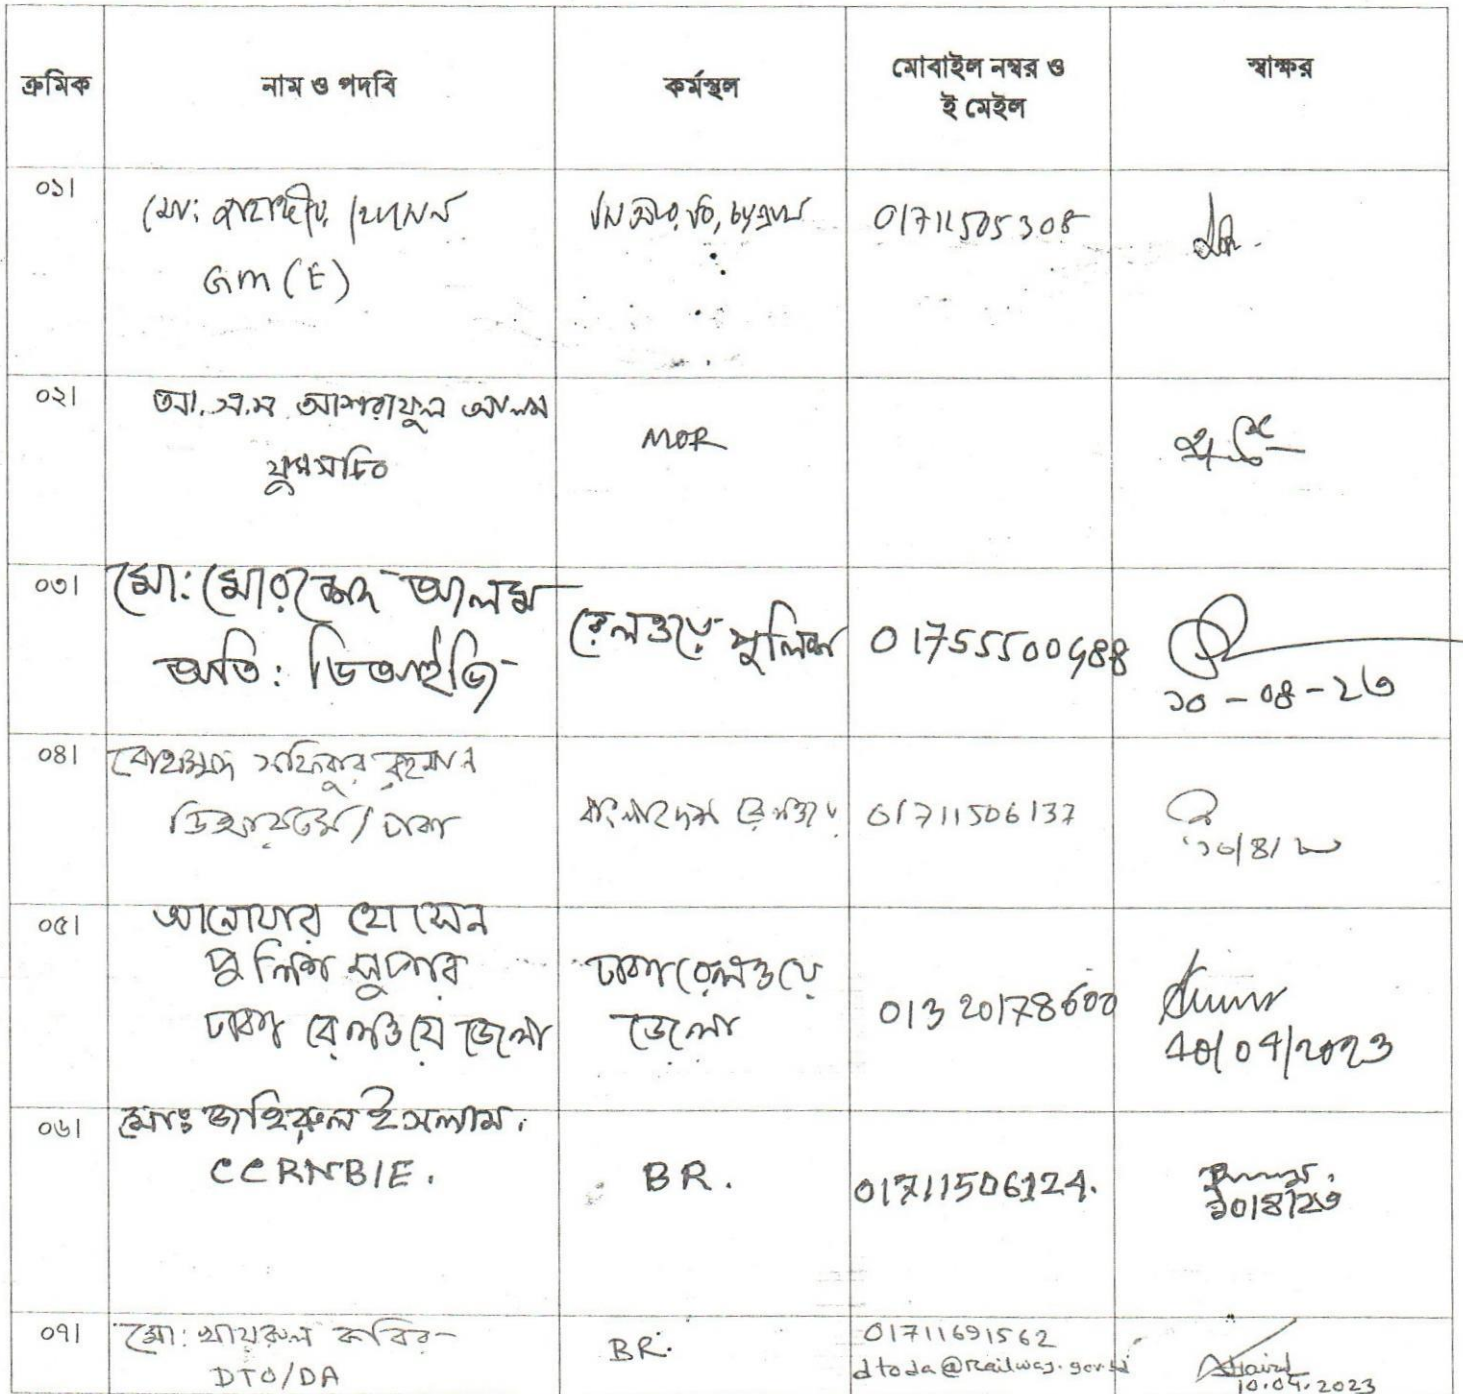 ক্রমিক নাম ও পদবি কর্মস্থল মোবাইল নম্বর ও ই মেইল স্বাক্ষর
০১।
মো: জাহাঙ্গীর হোসেন 01711505308
GM (E)
০২।
আ.স.ম আশরাফুল আলম MOR
যুগ্মসচিব
০৩।
মো: মোরশেদ আলম রেলওয়ে পুলিশ 01755500988
অতি: ডিআইজি
১০-০৪-২৩
০৪।
মোহাম্মদ সফিকুর রহমান
ডিআরএম/ঢাকা বাংলাদেশ রেলওয়ে 01711506137
০৫।
আনোয়ার হোসেন
পুলিশ সুপার
ঢাকা রেলওয়ে জেলা ঢাকা রেলওয়ে জেলা 01320178600
10/04/2023
০৬।
মোঃ জহিরুল ইসলাম.
BR. 01711506124.
১০/৪/২৩
০৭।
মো: খায়রুল কবির BR. 01711691562
DTO/DA
10.04.2023